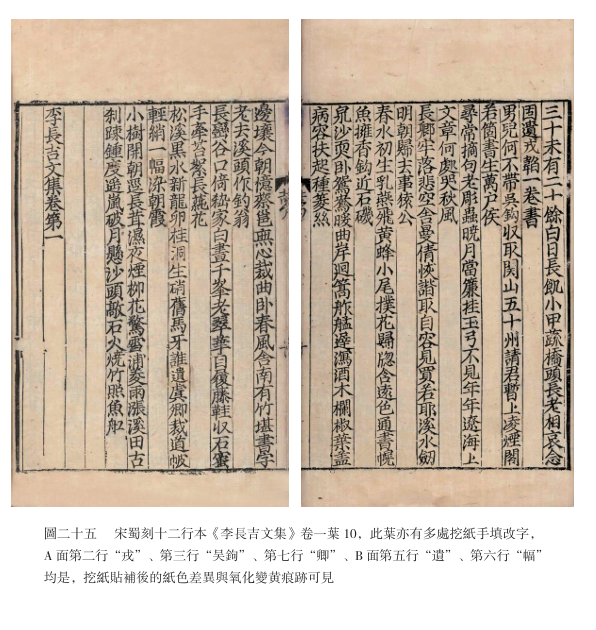 三十未有二十餘白日長飢小甲蔬橋頭長老相哀念
因遺戎韜一卷書
男兒何不帶吳鉤收取關山五十州請君暫上凌煙閣
若箇書生萬戶侯
尋常摘句老彫蟲曉月當簾挂玉弓不見年年遼海上
文章何處哭秋風
長卿牢落悲空舍曼倩詼諧取自容見買若耶溪水劒
明朝歸去事猿公
春水初生乳燕飛黃蜂小尾撲花歸窗含遠色通書幌
魚擁香鈎近石磯
泉沙耎臥鴛鴦暖曲岸迴篙舴艋遲瀉酒木欄椒葉蓋
病容扶起種菱絲
邊壤今朝憶蔡邕無心裁曲臥春風舍南有竹堪書字
老去溪頭作釣翁
長巒谷口倚嵇家白晝千峯老翠華自履藤鞋收石蜜
手牽苔絮長蓴花
松溪黑水新龍卵桂洞生硝舊馬牙誰遺虞卿裁道帔
輕綃一幅染朝霞
小樹開朝逕長茸濕夜煙柳花驚雪浦麥雨漲溪田古
刹疎鍾度遙嵐破月懸沙頭敲石火燒竹照魚船
李長吉文集卷第一
圖二十五 宋蜀刻十二行本《李長吉文集》卷一葉 10，此葉亦有多處挖紙手填改字，
A 面第二行“戎”、第三行“吳鉤”、第七行“卿”、B 面第五行“遺”、第六行“幅”
均是，挖紙貼補後的紙色差異與氧化變黃痕跡可見